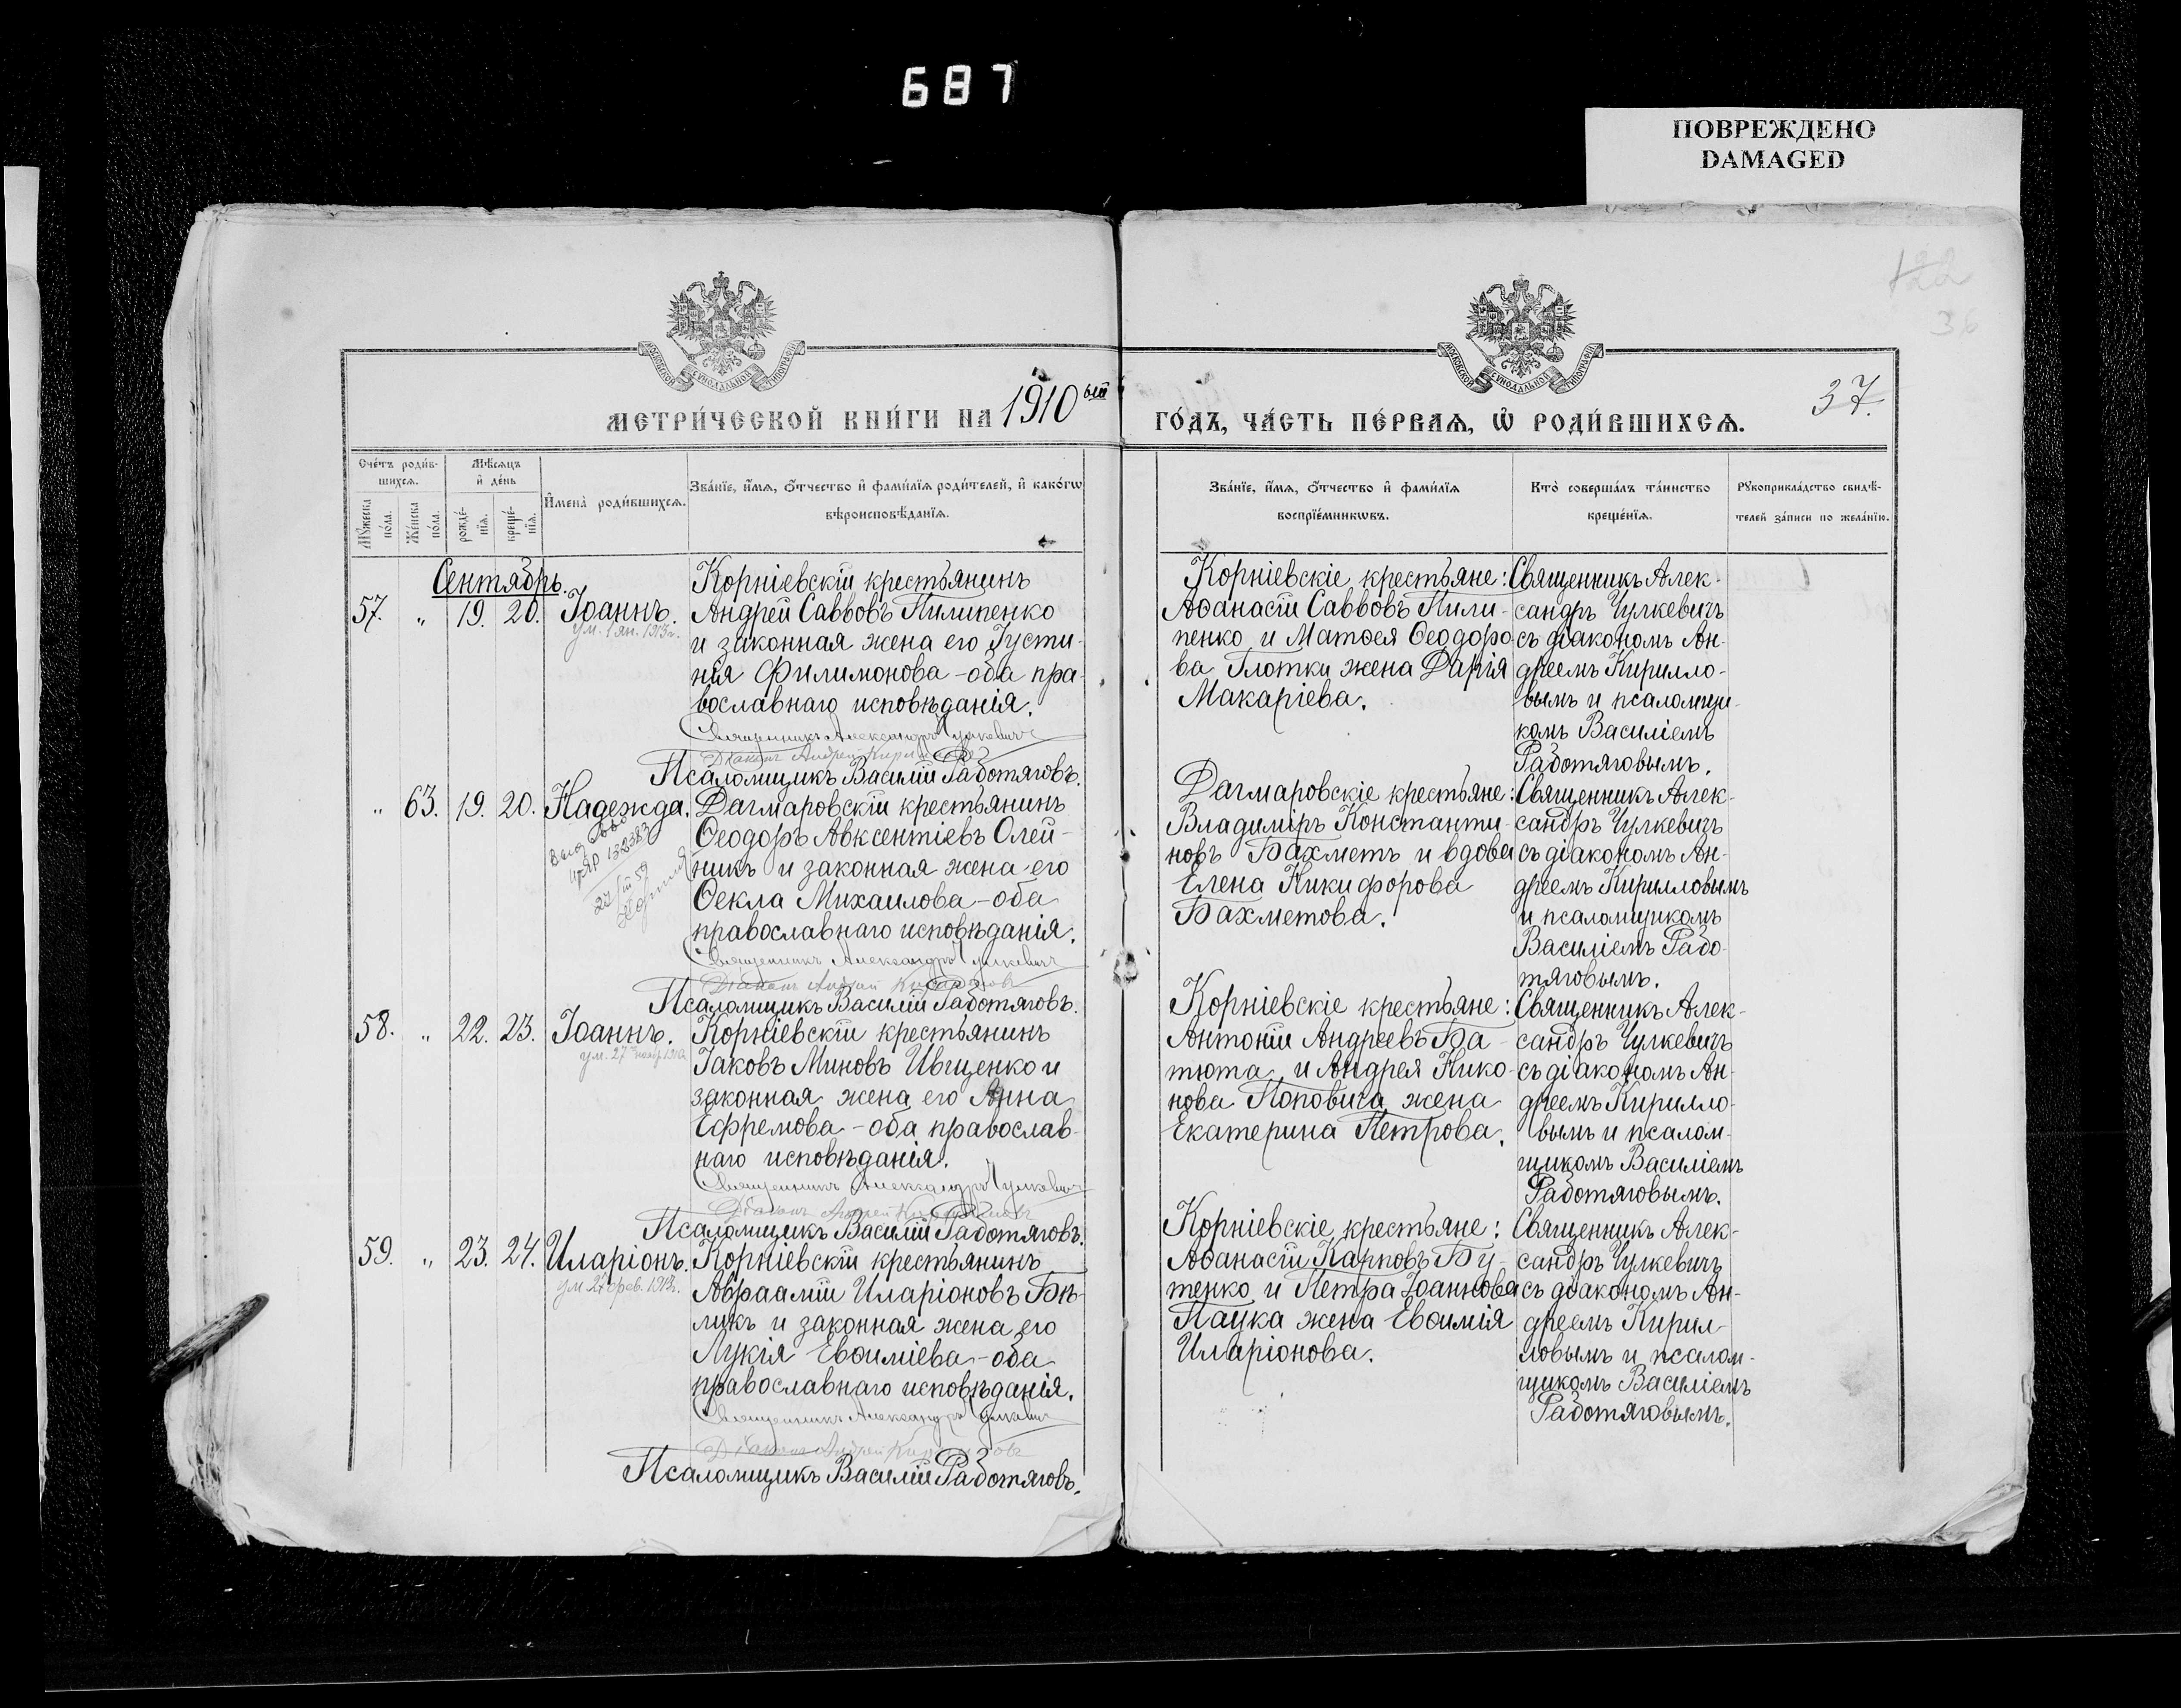 687
ПОВРЕЖДЕНО
DAMAGED
36
МОСКОВСКОЙ СѴНОДАЛЬНОЙ ТИПОГРАФІИ
МОСКОВСКОЙ СѴНОДАЛЬНОЙ ТИПОГРАФІИ
МЕТРИ́ЧЕСКОЙ КНИ́ГИ НА 1910ый ГО́ДЪ, ЧА́СТЬ ПЕ́РВАѦ, Ѽ РОДИ́ВШИХСѦ. 37.
Сче́тъ роди́в-
шихсѧ.
Мꙋжеска по́ла.
Же́нска по́ла.
Мѣ́сѧцъ
и҆ де́нь
рожде́-
нїѧ.
креще́-
нїѧ.
И҆мена̀ роди́вшихсѧ.
Зва́нїе, и҆́мѧ, ѻ҆́тчество и҆ фами́лїѧ роди́телей, и҆ како́гѡ
вѣроисповѣ́данїѧ.
Зва́нїе, и҆́мѧ, ѻ҆́тчество и҆ фами́лїѧ
воспрїе́мникѡвъ.
Кто̀ соверша́лъ та́инство
креще́нїѧ.
Рꙋкоприкла́дство свидѣ́-
телей за́писи по жела́нїю.
Сентябрь.
57. „ 19. 20. Іоаннъ.
ум. 1 ян. 1913 г.
Корніевскій крестьянинъ
Андрей Саввовъ Пилипенко
и законная жена его Іусти-
нія Филимонова - оба пра-
вославнаго исповѣданія.
Священникъ Александръ Чулкевичъ
Діаконъ Андрей Кирилловъ
Псаломщикъ Василій Работяговъ.
Корніевскіе крестьяне:
Аѳанасій Саввовъ Пили-
пенко и Матѳея Ѳеодоро-
ва Глотки жена Дарія
Макаріева.
Священникъ Алек-
сандръ Чулкевичъ
съ діакономъ Ан-
дреемъ Кирилло-
вымъ и псаломщи-
комъ Василіемъ
Работяговымъ.
„ 63. 19. 20. Надежда.
132383
Дагмаровскій крестьянинъ
Ѳеодоръ Авксентіевъ Олей-
никъ и законная жена его
Ѳекла Михаилова - оба
православнаго исповѣданія.
Священникъ Александръ Чулкевичъ
Діаконъ Андрей Кирилловъ
Псаломщикъ Василій Работяговъ.
Дагмаровскіе крестьяне:
Владиміръ Константи-
новъ Бахметъ и вдова
Елена Никифорова
Бахметова.
Священникъ Алек-
сандръ Чулкевичъ
съ діакономъ Ан-
дреемъ Кирилловымъ
и псаломщикомъ
Василіемъ Рабо-
тяговымъ.
58. „ 22. 23. Іоаннъ.
ум. 27 1910
Корніевскій крестьянинъ
Іаковъ Миновъ Ивщенко и
законная жена его Анна
Ефремова - оба православ-
наго исповѣданія.
Священникъ Александръ Чулкевичъ
Діаконъ Андрей Кирилловъ
Псаломщикъ Василій Работяговъ.
Корніевскіе крестьяне:
Антоній Андреевъ Ба-
тюта и Андрея Нико-
нова Поповича жена
Екатерина Петрова.
Священникъ Алек-
сандръ Чулкевичъ
съ діакономъ Ан-
дреемъ Кирилло-
вымъ и псалом-
щикомъ Василіемъ
Работяговымъ.
59. „ 23. 24. Иларіонъ.
ум 27 фев. 1913г.
Корніевскій крестьянинъ
Авраамій Иларіоновъ Бѣ-
ликъ и законная жена его
Лукія Евѳиміева - оба
православнаго исповѣданія.
Священникъ Александръ Чулкевичъ
Діаконъ Андрей Кирилловъ
Псаломщикъ Василій Работяговъ.
Корніевскіе крестьяне:
Аѳанасій Карповъ Бу-
тенко и Петра Іоаннова
Паука жена Евѳимія
Иларіонова.
Священникъ Алек-
сандръ Чулкевичъ
съ діакономъ Ан-
дреемъ Кирил-
ловымъ и псалом-
щикомъ Василіемъ
Работяговымъ.